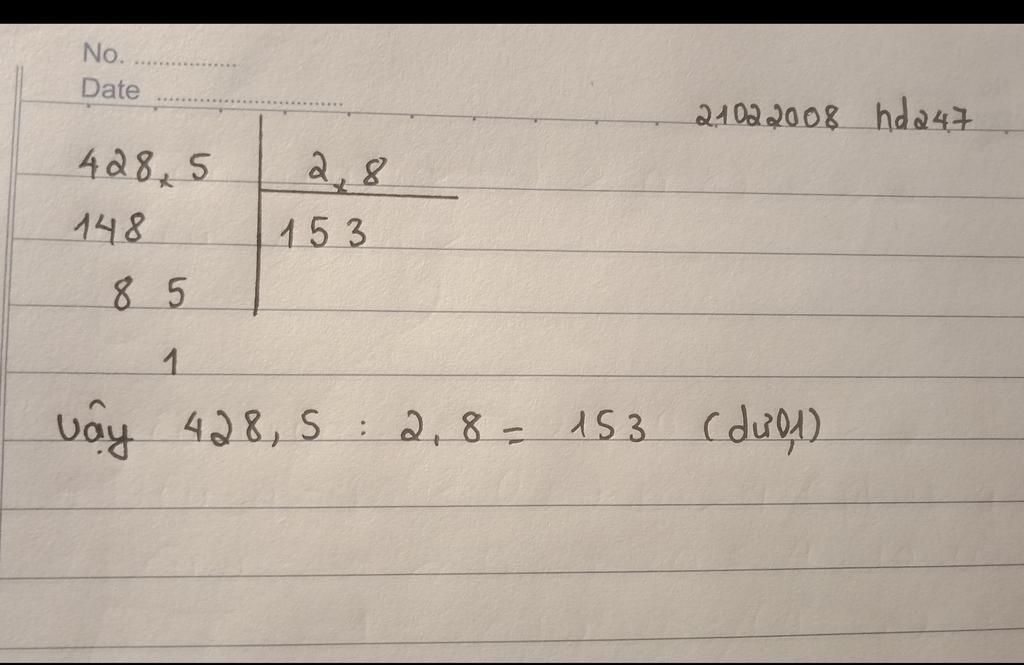 No. ................
Date ............................
21022008 hd247
428,5 2,8
148 153
8 5
1
Vậy 428,5 : 2,8 = 153 (dư 0,1)